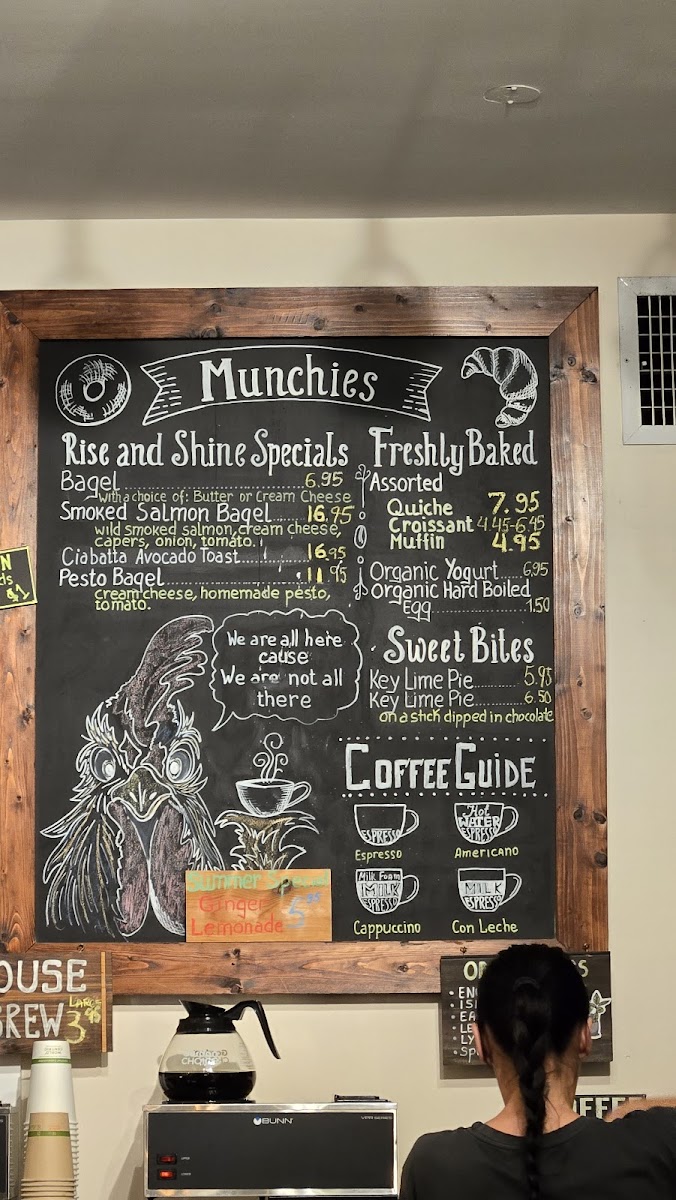 Munchies
Rise and Shine Specials
Bagel 6.95
with a choice of: Butter or Cream Cheese
Smoked Salmon Bagel 16.95
wild smoked salmon, cream cheese,
capers, onion, tomato.
Ciabatta Avocado Toast 16.95
Pesto Bagel 11.95
cream cheese, homemade pesto,
tomato.
Freshly Baked
Assorted
Quiche 7.95
Croissant 4.45-6.45
Muffin 4.95
Organic Yogurt 6.95
Organic Hard Boiled
Egg 1.50
Sweet Bites
Key Lime Pie 5.95
Key Lime Pie 6.50
on a stick dipped in chocolate
We are all here
cause
We are not all
there
COFFEE GUIDE
ESPRESSO
Espresso
Hot
WATER
ESPRESSO
Americano
Milk Foam
MILK
ESPRESSO
Cappuccino
MILK
ESPRESSO
Con Leche
Summer Special
Ginger
Lemonade 5.95
N
ds
$1
OUSE
BREW
LARGE
3.95
BUNN